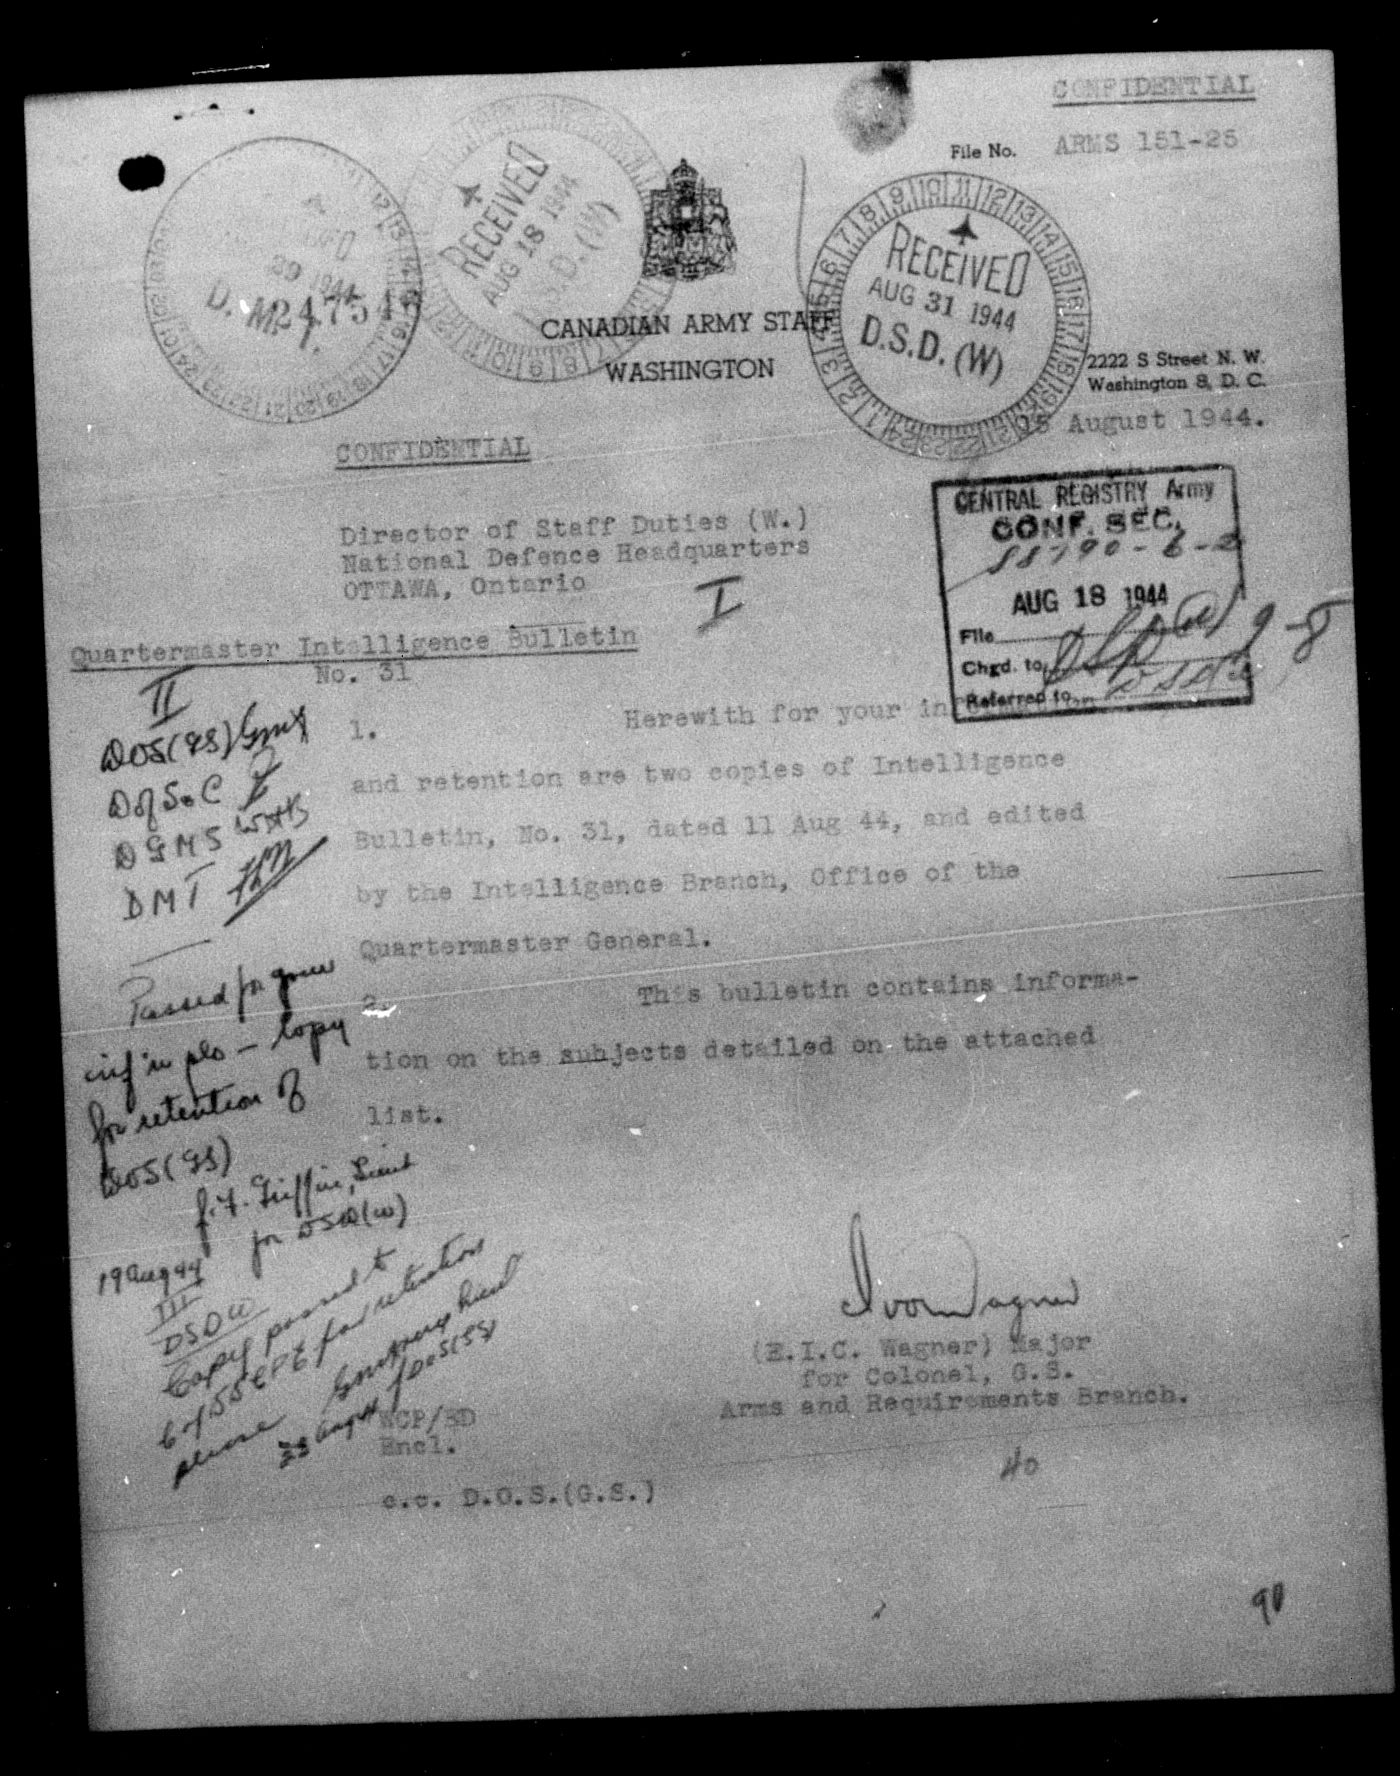 CONFIDENTIAL
File No. ARMS 151-25
RECEIVED
AUG 18 1944
D.S.D. (W)
RECEIVED
AUG 31 1944
D.S.D. (W)
1944
D. M. T.
247546
CANADIAN ARMY STAFF
WASHINGTON
2222 S Street N. W.
Washington 8, D. C.
15 August 1944.
CONFIDENTIAL
CENTRAL REGISTRY Army
CONF. SEC.
AUG 18 1944
File
Chgd. to
Referred to
Director of Staff Duties (W.)
National Defence Headquarters
OTTAWA, Ontario
I
Quartermaster Intelligence Bulletin
No. 31
II
DOS(GS)
D of S. C
DGMS
DMT
1. Herewith for your information
and retention are two copies of Intelligence
Bulletin, No. 31, dated 11 Aug 44, and edited
by the Intelligence Branch, Office of the
Quartermaster General.
2. This bulletin contains informa-
tion on the subjects detailed on the attached
list.
Passed for your
inf'n pls - Copy
for retention of
DOS(GS)
Griffin, Lieut
for DSD(W)
19 Aug 44
III
DSDW
Copy passed to
for retention
please
(E.I.C. Wagner) Major
for Colonel, G.S.
Arms and Requirements Branch.
Encl.
c.c. D.O.S.(G.S.)
40
90